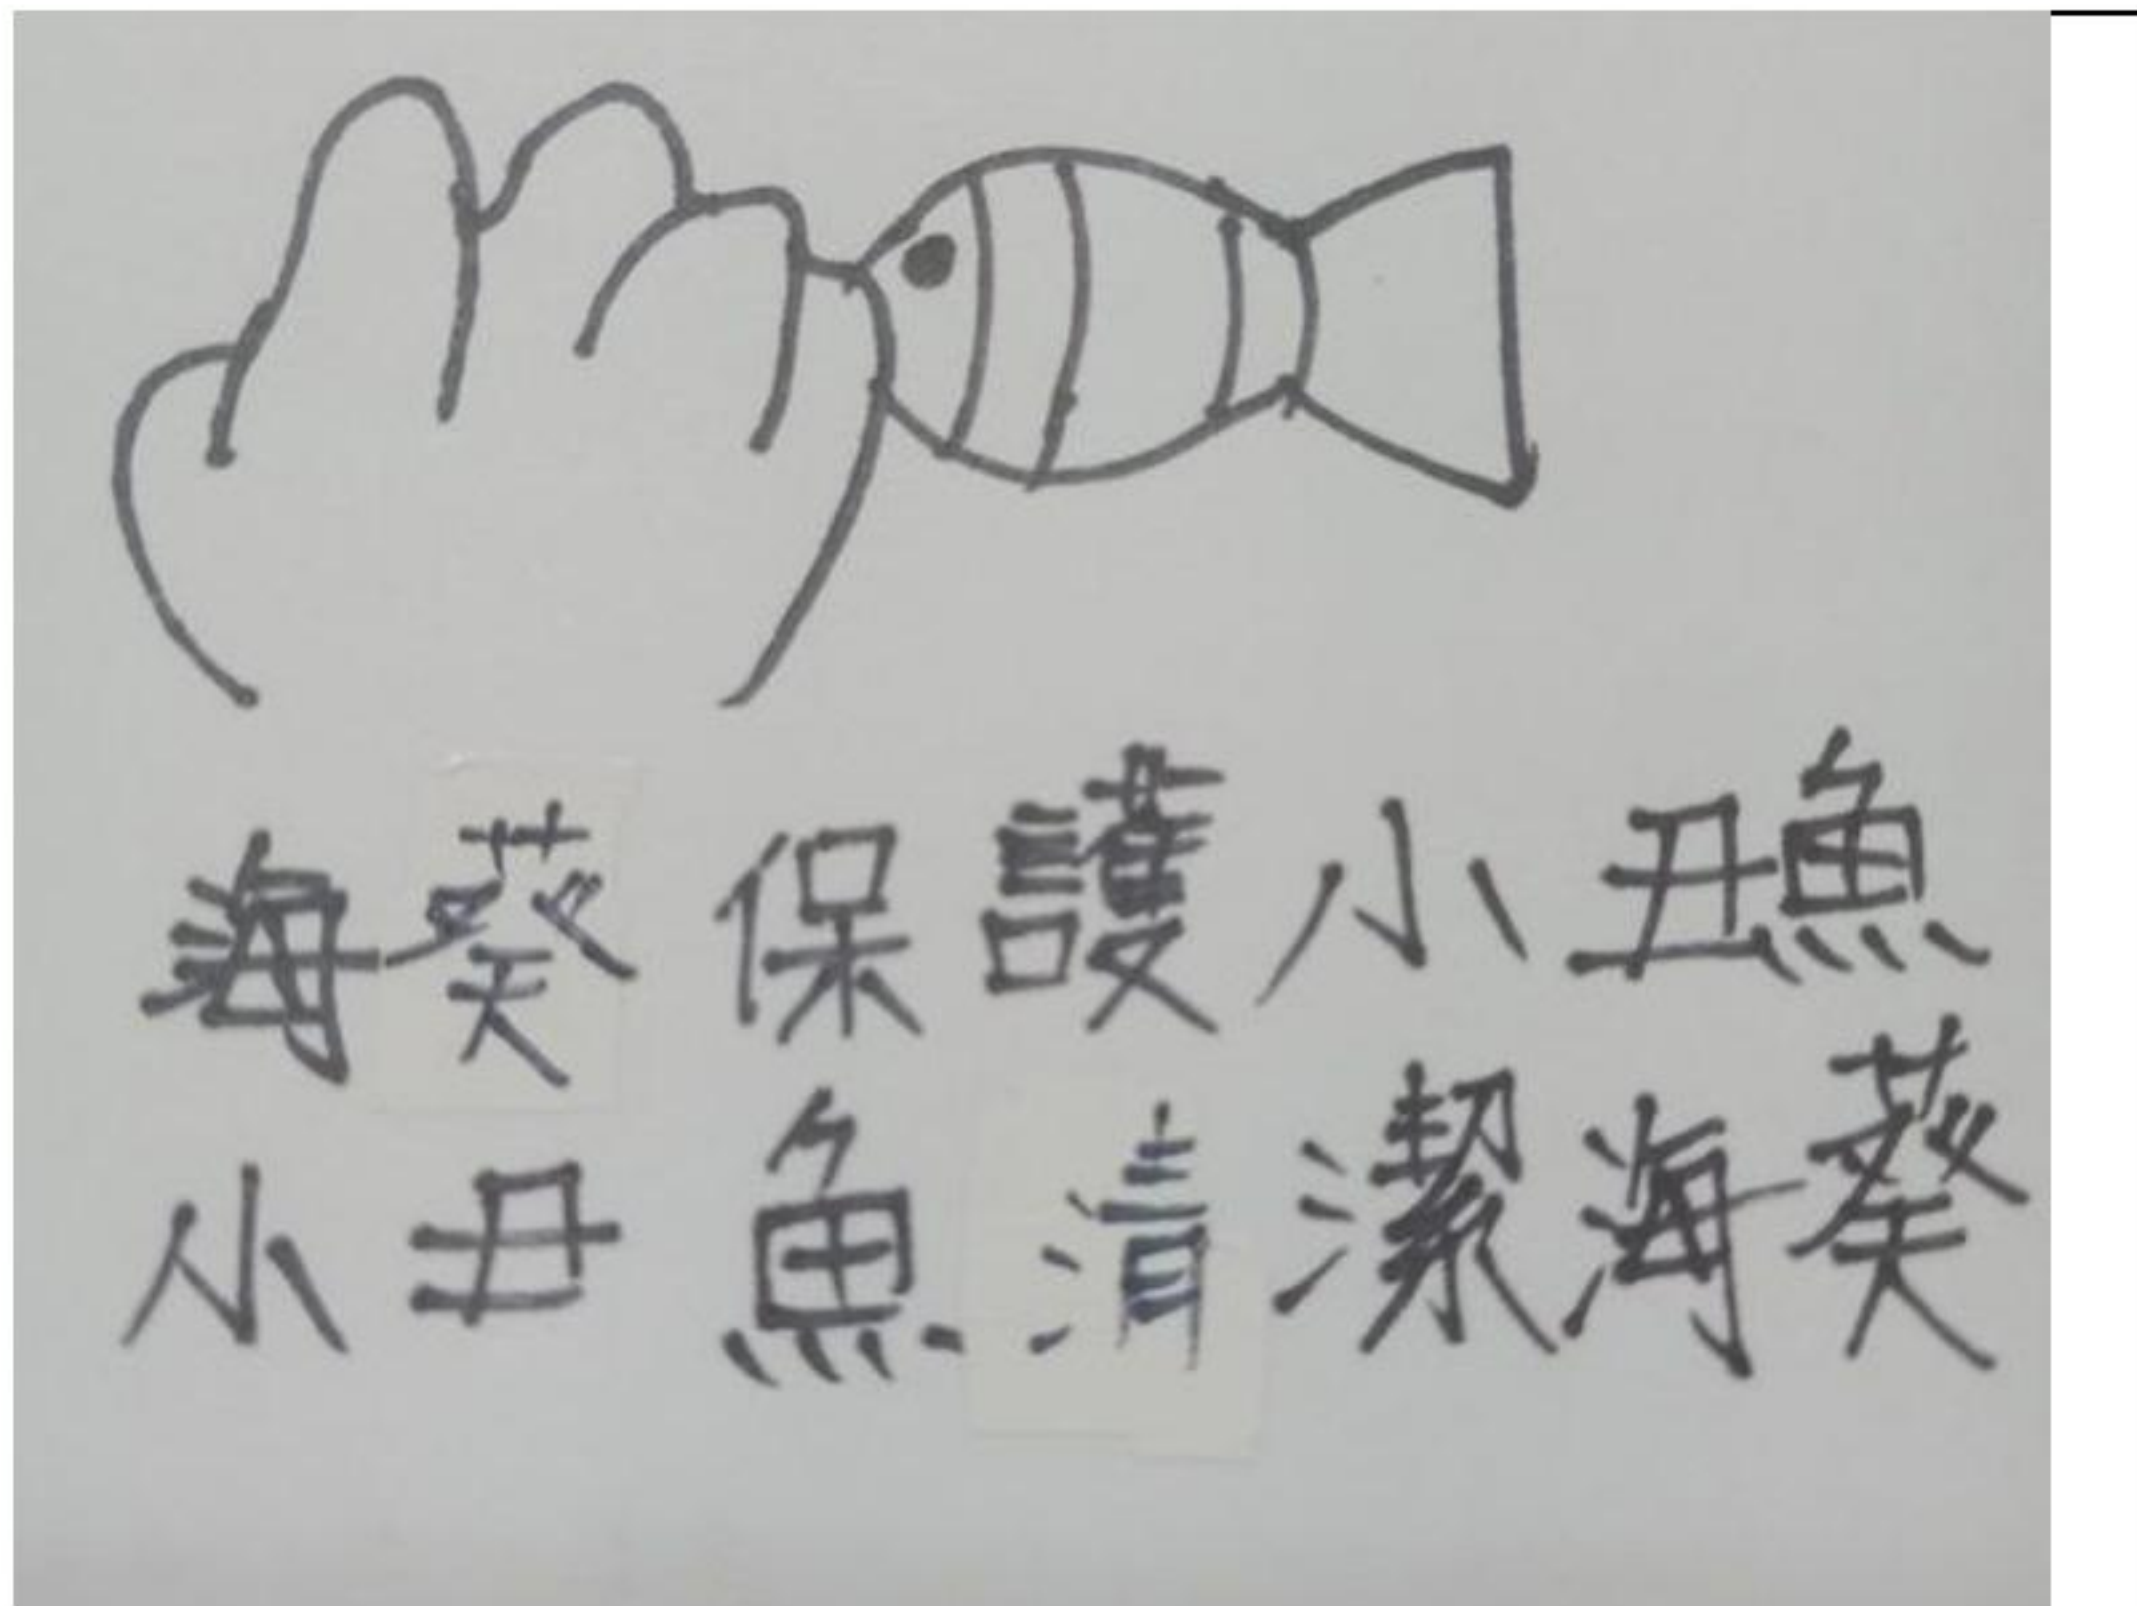 海葵保護小丑魚
小丑魚清潔海葵